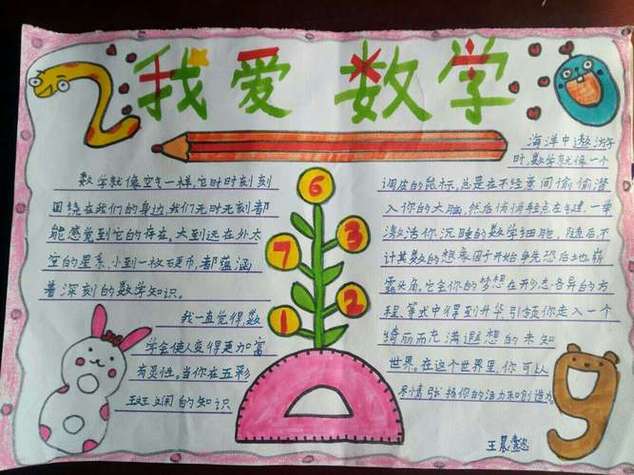 我爱数学
数学就像空气一样,它时时刻刻
围绕在我们的身边,我们无时无刻都
能感觉到它的存在,大到远在外太
空的星系,小到一枚硬币,都蕴涵
着深刻的数学知识。
我一直觉得数
学会使人变得更加富
有灵性。当你在五彩
斑斓的知识
6
7
3
1
2
海洋中遨游
时,数学就像一个
调皮的鼠标,总是在不经意间偷偷潜
入你的大脑,然后悄悄轻点左键,一举
激活你沉睡的数学细胞,随后不
计其数的想象因子开始争先恐后地崭
露头角,它会你的梦想在形态各异的方
程、等式中得到升华,引领你走入一个
绮丽而充满遐想的未知
世界。在这个世界里,你可以
尽情张扬你的活力和创造力。
王晨